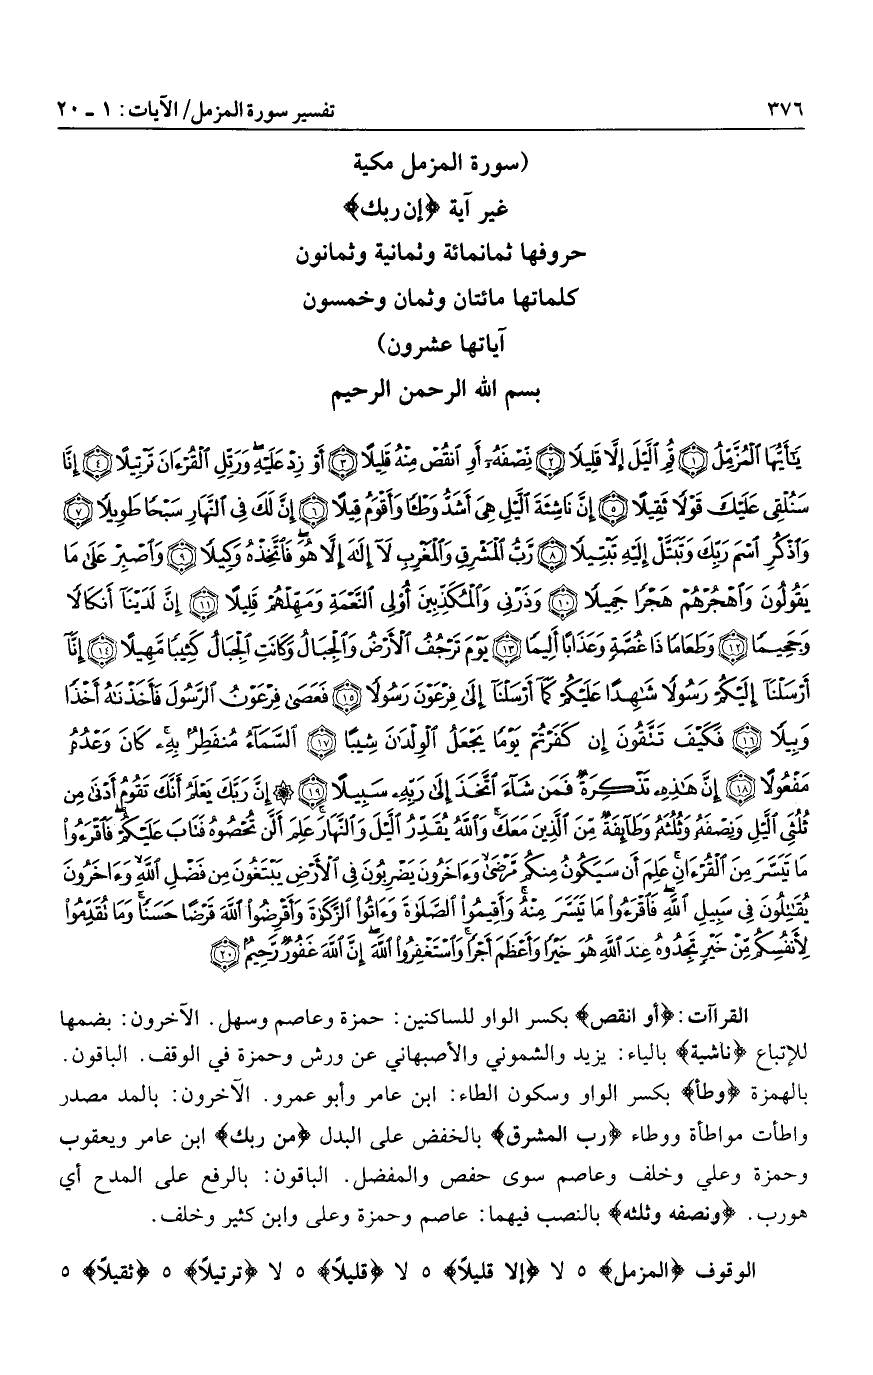 ٣٧٦ تفسير سورة المزمل/ الآيات: ١ ـ ٢٠
(سورة المزمل مكية
غير آية ﴿إن ربك﴾
حروفها ثمانمائة وثمانية وثمانون
كلماتها مائتان وثمان وخمسون
آياتها عشرون)
بسم الله الرحمن الرحيم
يَٰٓأَيُّهَا ٱلْمُزَّمِّلُ ﴿١﴾ قُمِ ٱلَّيْلَ إِلَّا قَلِيلًا ﴿٢﴾ نِّصْفَهُۥٓ أَوِ ٱنقُصْ مِنْهُ قَلِيلًا ﴿٣﴾ أَوْ زِدْ عَلَيْهِ وَرَتِّلِ ٱلْقُرْءَانَ تَرْتِيلًا ﴿٤﴾ إِنَّا
سَنُلْقِى عَلَيْكَ قَوْلًا ثَقِيلًا ﴿٥﴾ إِنَّ نَاشِئَةَ ٱلَّيْلِ هِىَ أَشَدُّ وَطْـًٔا وَأَقْوَمُ قِيلًا ﴿٦﴾ إِنَّ لَكَ فِى ٱلنَّهَارِ سَبْحًا طَوِيلًا ﴿٧﴾
وَٱذْكُرِ ٱسْمَ رَبِّكَ وَتَبَتَّلْ إِلَيْهِ تَبْتِيلًا ﴿٨﴾ رَّبُّ ٱلْمَشْرِقِ وَٱلْمَغْرِبِ لَآ إِلَٰهَ إِلَّا هُوَ فَٱتَّخِذْهُ وَكِيلًا ﴿٩﴾ وَٱصْبِرْ عَلَىٰ مَا
يَقُولُونَ وَٱهْجُرْهُمْ هَجْرًا جَمِيلًا ﴿١٠﴾ وَذَرْنِى وَٱلْمُكَذِّبِينَ أُو۟لِى ٱلنَّعْمَةِ وَمَهِّلْهُمْ قَلِيلًا ﴿١١﴾ إِنَّ لَدَيْنَآ أَنكَالًا
وَجَحِيمًا ﴿١٢﴾ وَطَعَامًا ذَا غُصَّةٍ وَعَذَابًا أَلِيمًا ﴿١٣﴾ يَوْمَ تَرْجُفُ ٱلْأَرْضُ وَٱلْجِبَالُ وَكَانَتِ ٱلْجِبَالُ كَثِيبًا مَّهِيلًا ﴿١٤﴾ إِنَّآ
أَرْسَلْنَآ إِلَيْكُمْ رَسُولًا شَٰهِدًا عَلَيْكُمْ كَمَآ أَرْسَلْنَآ إِلَىٰ فِرْعَوْنَ رَسُولًا ﴿١٥﴾ فَعَصَىٰ فِرْعَوْنُ ٱلرَّسُولَ فَأَخَذْنَٰهُ أَخْذًا
وَبِيلًا ﴿١٦﴾ فَكَيْفَ تَتَّقُونَ إِن كَفَرْتُمْ يَوْمًا يَجْعَلُ ٱلْوِلْدَٰنَ شِيبًا ﴿١٧﴾ ٱلسَّمَآءُ مُنفَطِرٌۢ بِهِۦ كَانَ وَعْدُهُۥ
مَفْعُولًا ﴿١٨﴾ إِنَّ هَٰذِهِۦ تَذْكِرَةٌ فَمَن شَآءَ ٱتَّخَذَ إِلَىٰ رَبِّهِۦ سَبِيلًا ﴿١٩﴾ ۞ إِنَّ رَبَّكَ يَعْلَمُ أَنَّكَ تَقُومُ أَدْنَىٰ مِن
ثُلُثَىِ ٱلَّيْلِ وَنِصْفَهُۥ وَثُلُثَهُۥ وَطَآئِفَةٌ مِّنَ ٱلَّذِينَ مَعَكَ وَٱللَّهُ يُقَدِّرُ ٱلَّيْلَ وَٱلنَّهَارَ عَلِمَ أَن لَّن تُحْصُوهُ فَتَابَ عَلَيْكُمْ فَٱقْرَءُوا۟
مَا تَيَسَّرَ مِنَ ٱلْقُرْءَانِ عَلِمَ أَن سَيَكُونُ مِنكُم مَّرْضَىٰ وَءَاخَرُونَ يَضْرِبُونَ فِى ٱلْأَرْضِ يَبْتَغُونَ مِن فَضْلِ ٱللَّهِ وَءَاخَرُونَ
يُقَٰتِلُونَ فِى سَبِيلِ ٱللَّهِ فَٱقْرَءُوا۟ مَا تَيَسَّرَ مِنْهُ وَأَقِيمُوا۟ ٱلصَّلَوٰةَ وَءَاتُوا۟ ٱلزَّكَوٰةَ وَأَقْرِضُوا۟ ٱللَّهَ قَرْضًا حَسَنًا وَمَا تُقَدِّمُوا۟
لِأَنفُسِكُم مِّنْ خَيْرٍ تَجِدُوهُ عِندَ ٱللَّهِ هُوَ خَيْرًا وَأَعْظَمَ أَجْرًا وَٱسْتَغْفِرُوا۟ ٱللَّهَ إِنَّ ٱللَّهَ غَفُورٌ رَّحِيمٌۢ ﴿٢٠﴾
القراآت: ﴿أو انقص﴾ بكسر الواو للساكنين: حمزة وعاصم وسهل. الآخرون: بضمها
للإتباع ﴿ناشية﴾ بالياء: يزيد والشموني والأصبهاني عن ورش وحمزة في الوقف. الباقون.
بالهمزة ﴿وطأ﴾ بكسر الواو وسكون الطاء: ابن عامر وأبو عمرو. الآخرون: بالمد مصدر
واطأت مواطأة ووطاء ﴿رب المشرق﴾ بالخفض على البدل ﴿من ربك﴾ ابن عامر ويعقوب
وحمزة وعلي وخلف وعاصم سوى حفص والمفضل. الباقون: بالرفع على المدح أي
هورب. ﴿ونصفه وثلثه﴾ بالنصب فيهما: عاصم وحمزة وعلى وابن كثير وخلف.
الوقوف ﴿المزمل﴾ ٥ لا ﴿إلا قليلاً﴾ ٥ لا ﴿قليلاً﴾ ٥ لا ﴿ترتيلاً﴾ ٥ ﴿ثقيلاً﴾ ٥